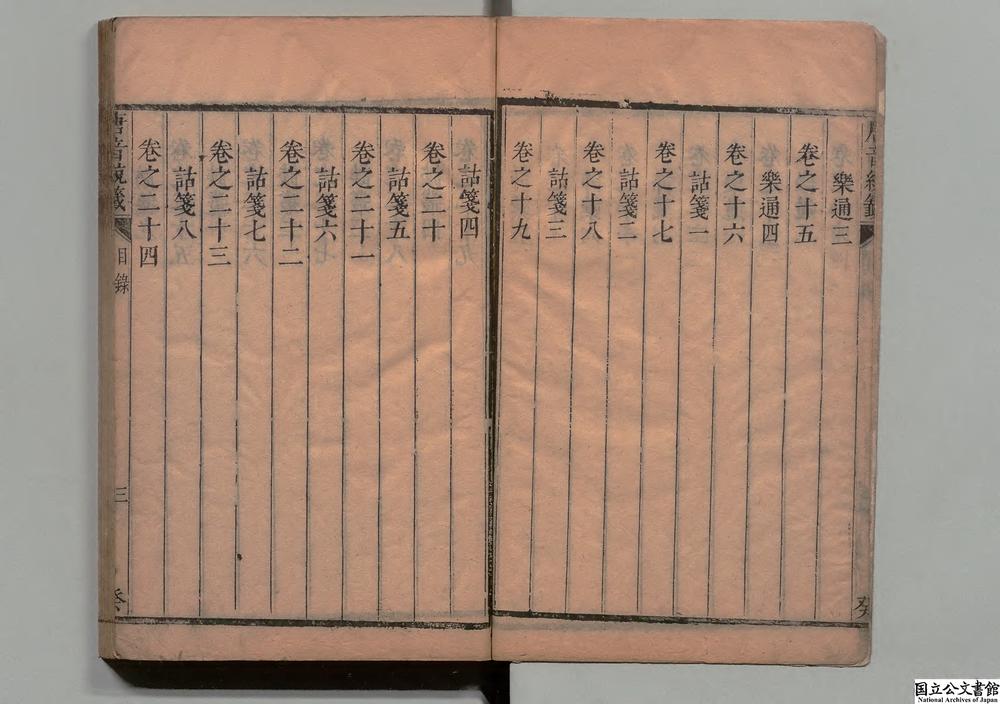 樂通三
卷之十五
樂通四
卷之十六
詁箋一
卷之十七
詁箋二
卷之十八
詁箋三
卷之十九
詁箋四
卷之二十
詁箋五
卷之二十一
詁箋六
卷之二十二
詁箋七
卷之二十三
詁箋八
卷之二十四
唐音癸籤
目錄
三
癸
国立公文書館
National Archives of Japan